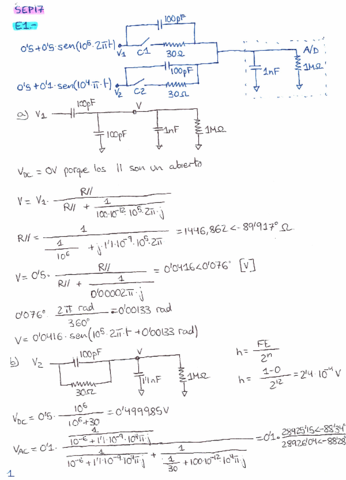 SEP17
E1.-
100pF
0'5+0'5 sen(10⁵·2πt)
V1 C1
30Ω
100pF
A/D
0'5+0'1·sen(10⁴π·t)
V2 C2
30Ω
1nF
1MΩ
a) V1 100pF V
100pF
1nF
1MΩ
VDC = 0V porque los || son un abierto
V = V1 · R// / (R// + 1/(100·10⁻¹²·10⁵·2π·j))
R// = 1 / (1/10⁶ + j1'1·10⁻⁹·10⁵·2π) = 1446,862<-89'917° Ω
V = 0'5 · R// / (R// + 1/(0'00002π·j)) = 0'0416<0'076° [V]
0'076° 2π rad / 360° = 0'00133 rad
V = 0'0416·sen(10⁵·2π·t + 0'00133 rad)
b) V2 100pF
30Ω
1'1nF
1MΩ
h = FE / 2ⁿ
h = 1-0 / 2¹² = 2'4·10⁻⁴ V
VDC = 0'5 · 10⁶ / (10⁶+30) = 0'499985V
VAC = 0'1 · (1/(10⁻⁶+1'1·10⁻⁹·10⁴πj)) / (1/(10⁻⁶+1'1·10⁻⁹·10⁴πj) + 1/(1/30+100·10⁻¹²·10⁴πj)) = 0'1 ·
1